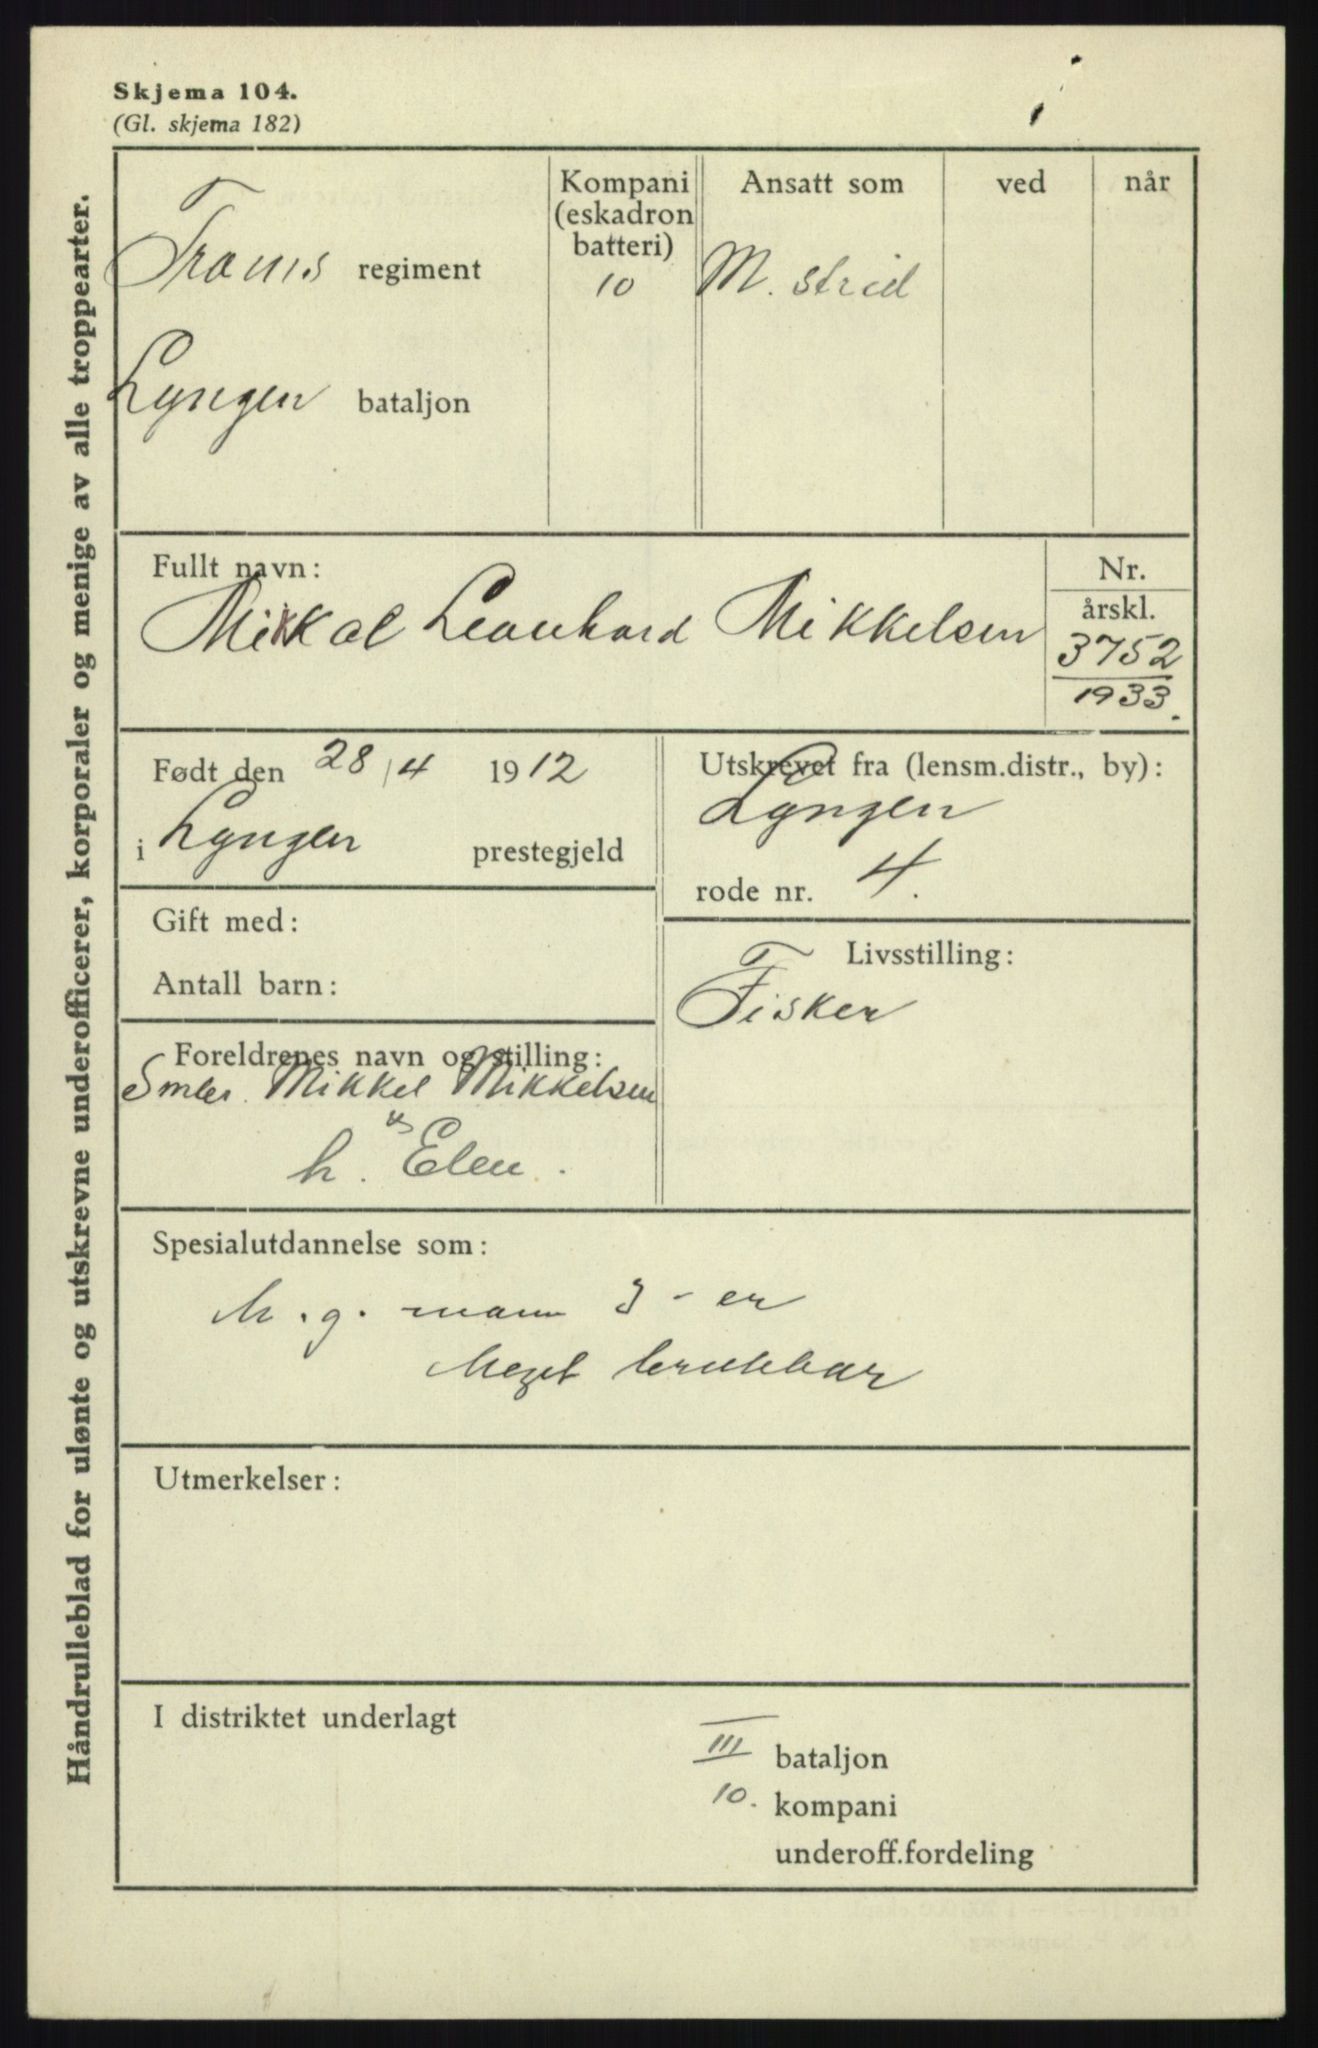 Skjema 104.
(Gl. skjema 182)
Håndrulleblad for ulønte og utskrevne underofficerer, korporaler og menige av alle troppearter.
Troms regiment
Lyngen bataljon
Kompani
(eskadron
batteri)
10
Ansatt som
M. strid
ved
når
Fullt navn:
Mikkal Leonhard Mikkelsen
Nr.
årskl.
3752
1933.
Født den 28/4 1912
i Lyngen prestegjeld
Utskrevet fra (lensm.distr., by):
Lyngen
rode nr. 4.
Gift med:
Antall barn:
Livsstilling:
Fisker
Foreldrenes navn og stilling:
Smbr. Mikkel Mikkelsen
h. Elen.
Spesialutdannelse som:
M.g. mann 3-er
Meget brukbar
Utmerkelser:
I distriktet underlagt
III bataljon
10. kompani
underoff.fordeling